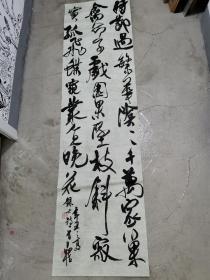 時節過繁華陰〻千萬家巢
禽命子戲園果墜枝斜寂
寞孤飛蝶窺叢覓晚花